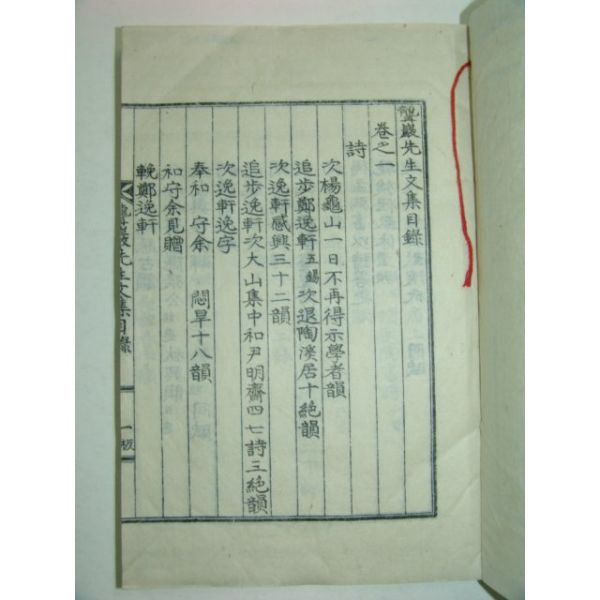 聾巖先生文集目錄
卷之一
詩
次楊龜山一日不再得示學者韻
追步鄭逸軒五錫次退陶溪居十絶韻
次逸軒感興三十二韻
追步逸軒次大山集中和尹明齋四七詩三絶韻
次逸軒逸字
奉和守余 悶旱十八韻
和守余見贈
輓鄭逸軒
聾巖先生文集目錄 一板